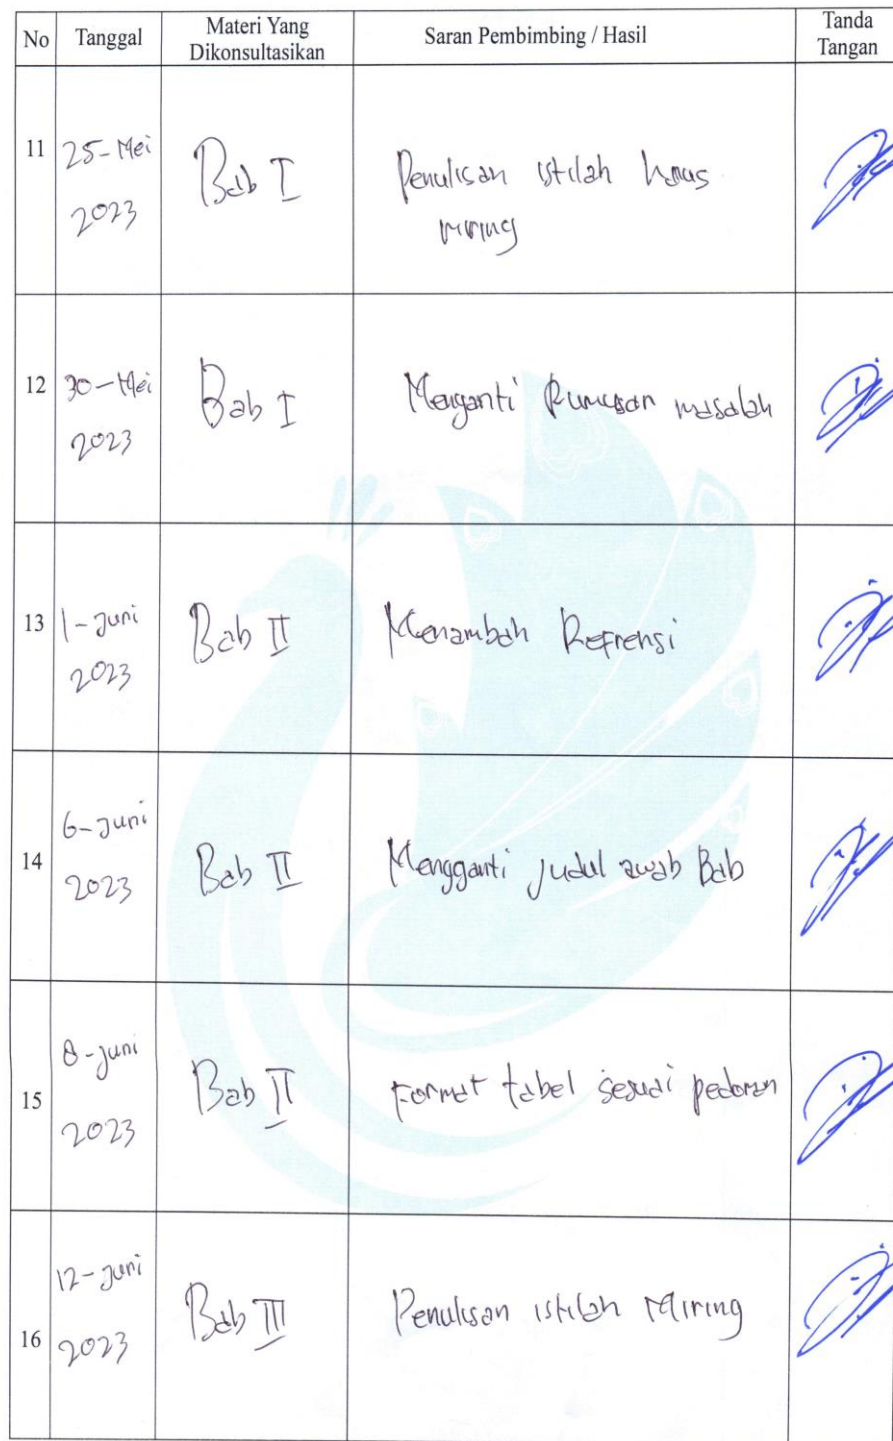 No Tanggal Materi Yang Dikonsultasikan Saran Pembimbing / Hasil Tanda Tangan
11 25-Mei 2023 Bab I Penulisan istilah harus miring
12 30-Mei 2023 Bab I Menganti Rumusan masalah
13 1-Juni 2023 Bab II Menambah Refrensi
14 6-Juni 2023 Bab II Mengganti Judul awab Bab
15 8-Juni 2023 Bab II Format tabel sesuai pedoman
16 12-Juni 2023 Bab III Penulisan istilah Miring